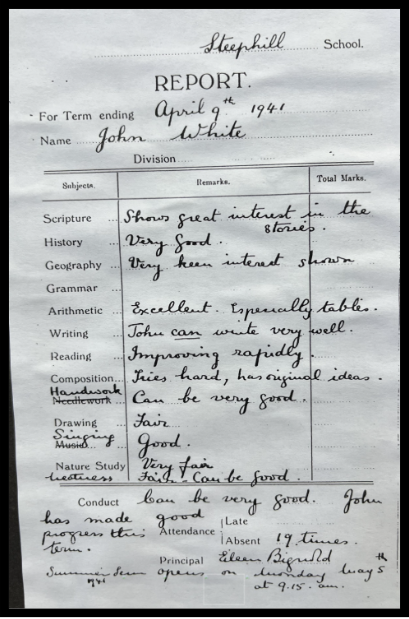 Steephill School.
REPORT.
For Term ending April 9th 1941
Name John White
Division
Subjects. Remarks. Total Marks.
Scripture Shows great interest in the
stories.
History Very Good.
Geography Very keen interest shown
Grammar
Arithmetic Excellent. Especially tables.
Writing John can write very well.
Reading Improving rapidly.
Composition Tries hard, has original ideas.
Handwork
Needlework Can be very good.
Drawing Fair
Singing
Music Good.
Nature Study Very fair
Neatness Fair. Can be good.
Conduct Can be very good. John
has made good
progress this
term.
Attendance Late
Absent 19 times.
Principal Eileen Bignold
Summer Term opens on Monday May 5th
1941 at 9.15. am.